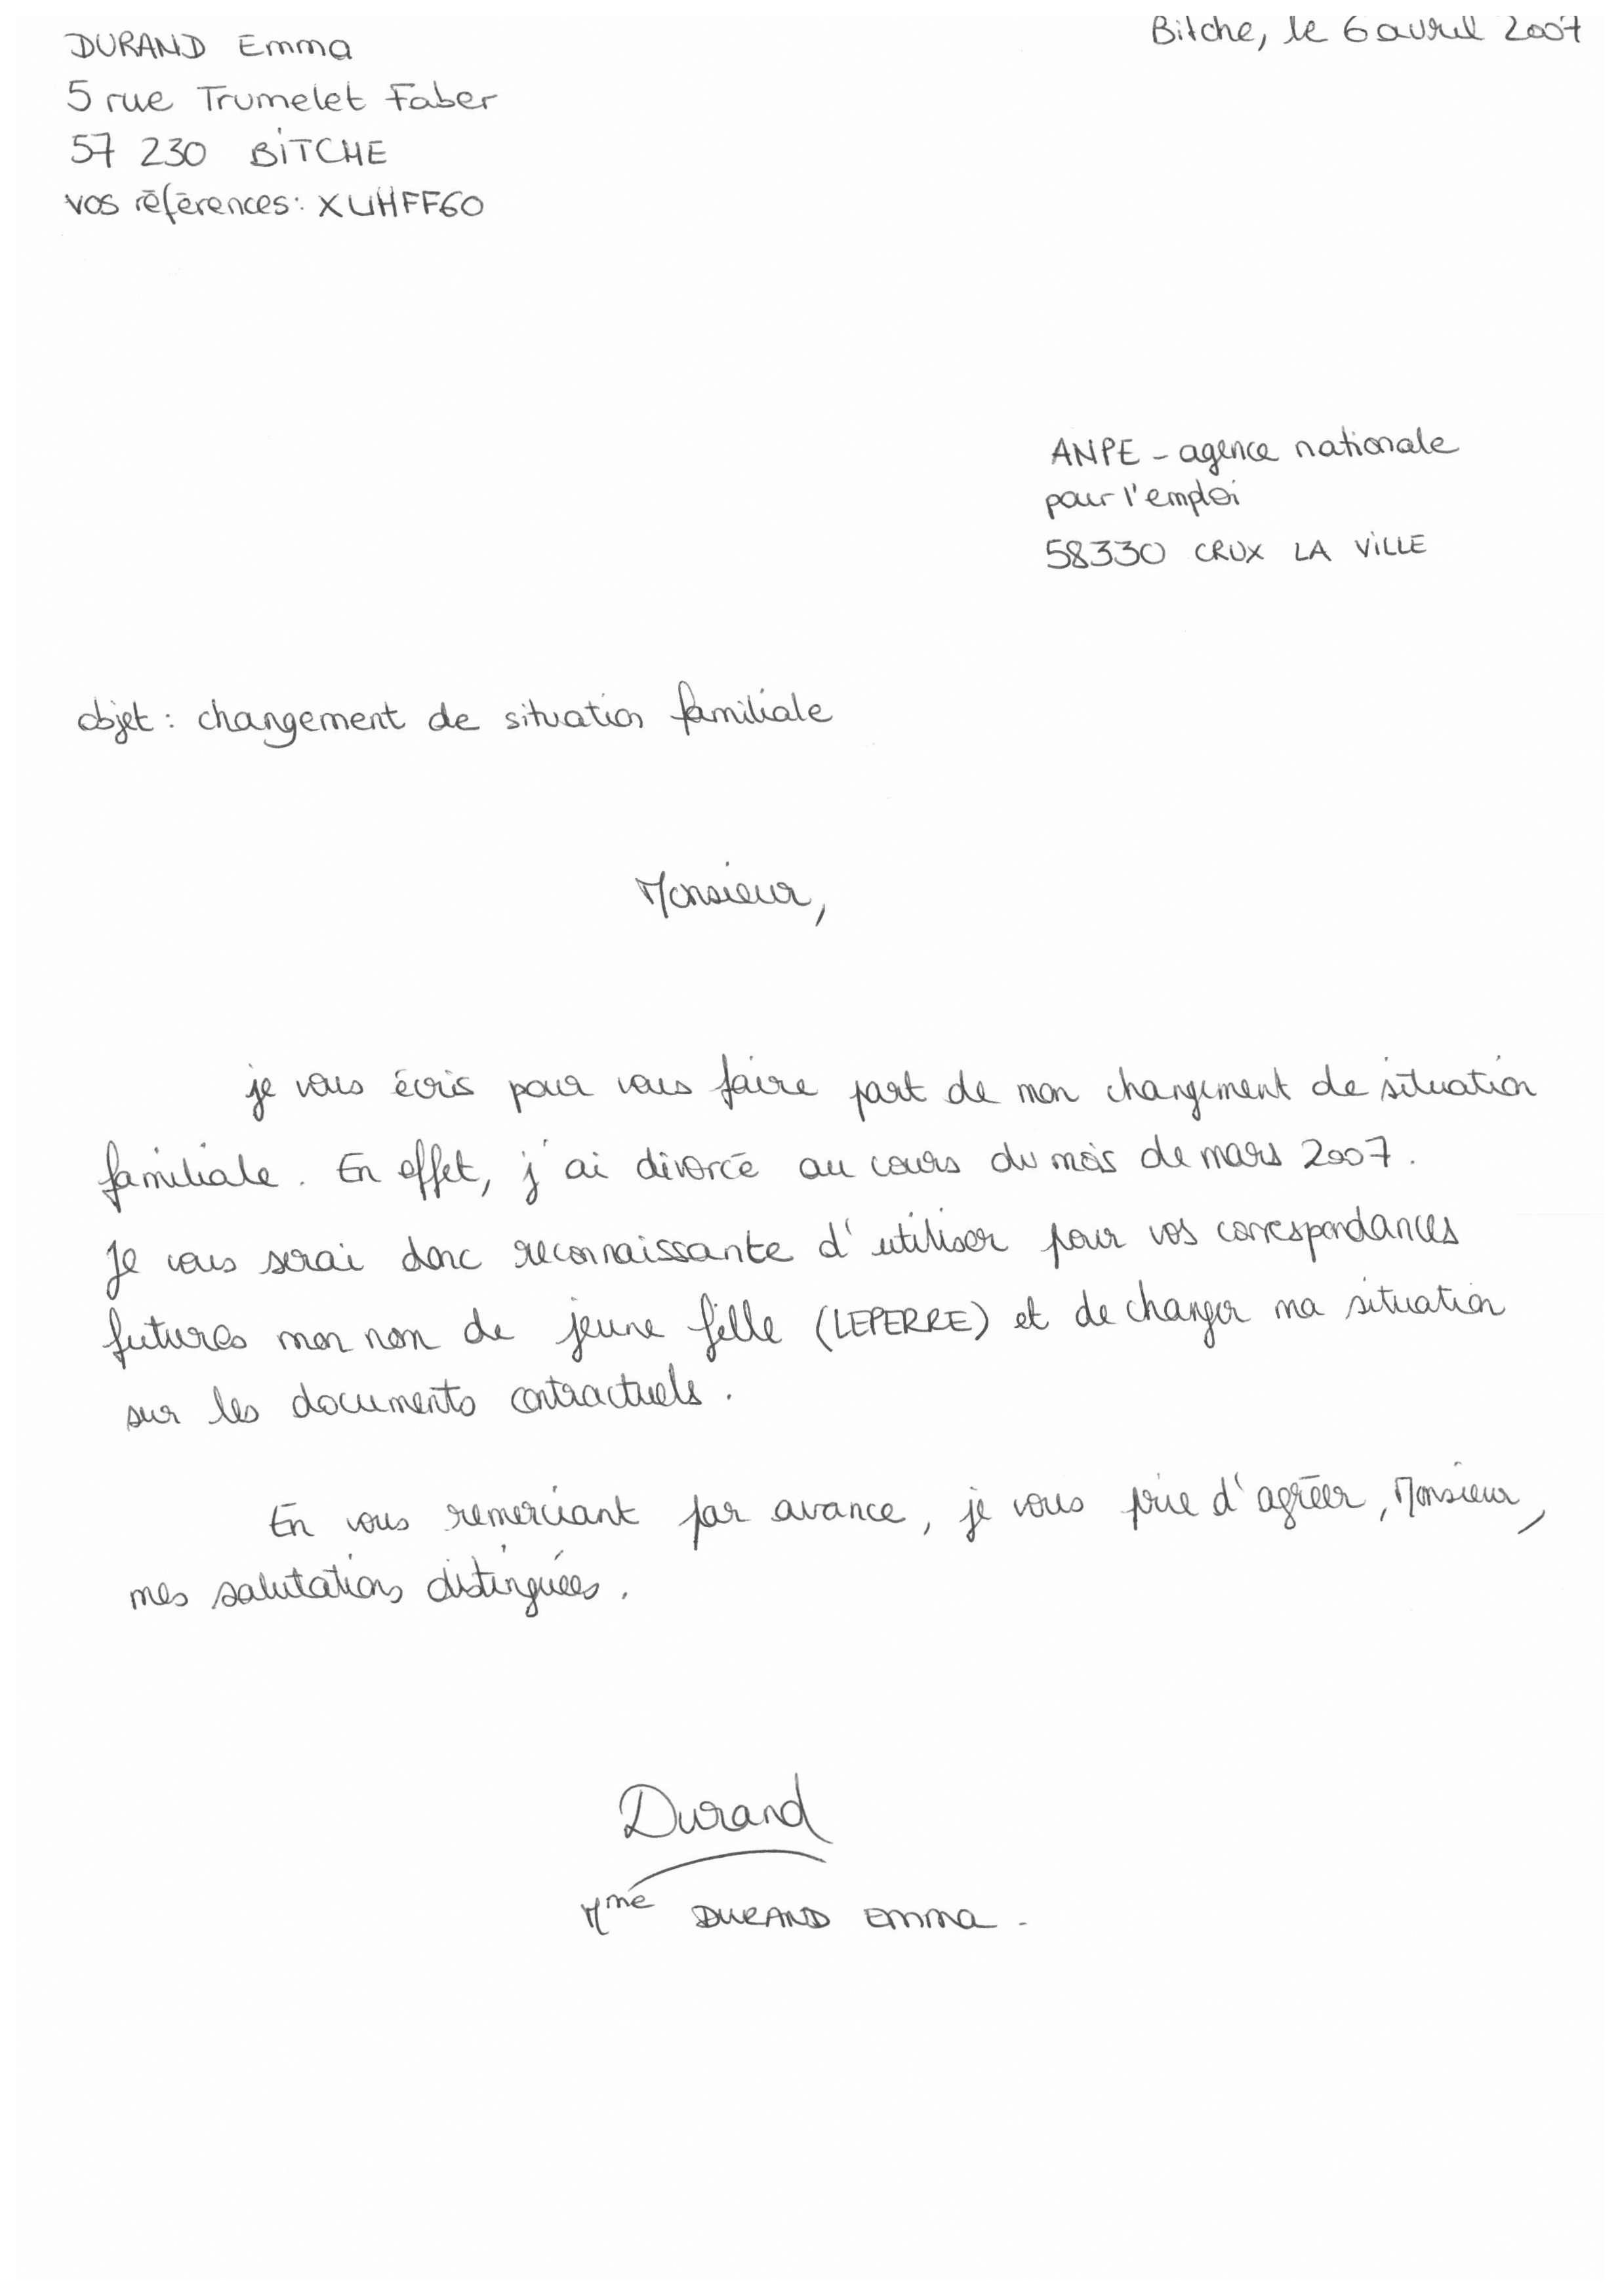 DURAND Emma
Bitche, le 6 avril 2007
5 rue Trumelet Faber
57 230 BITCHE
vos références: XUHFF60
ANPE - agence nationale
pour l'emploi
58330 CRUX LA VILLE
objet : changement de situation familiale
Monsieur,
je vous écris pour vous faire part de mon changement de situation
familiale. En effet, j'ai divorcé au cours du mois de mars 2007.
Je vous serai donc reconnaissante d'utiliser pour vos correspondances
futures mon nom de jeune fille (LEPERRE) et de changer ma situation
sur les documents contractuels.
En vous remerciant par avance, je vous prie d'agréer, Monsieur,
mes salutations distinguées.
Durand
Mme DURAND Emma.